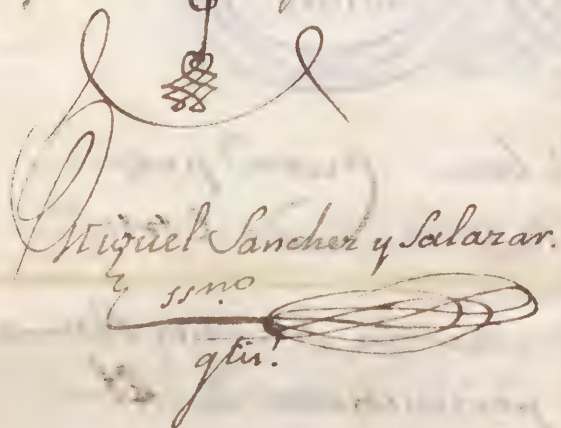 Miguel Sanchez y Salazar.
ssno